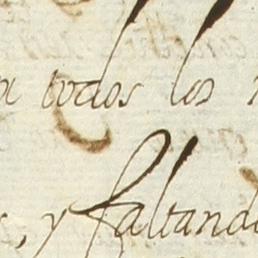 todos los
, y faltand